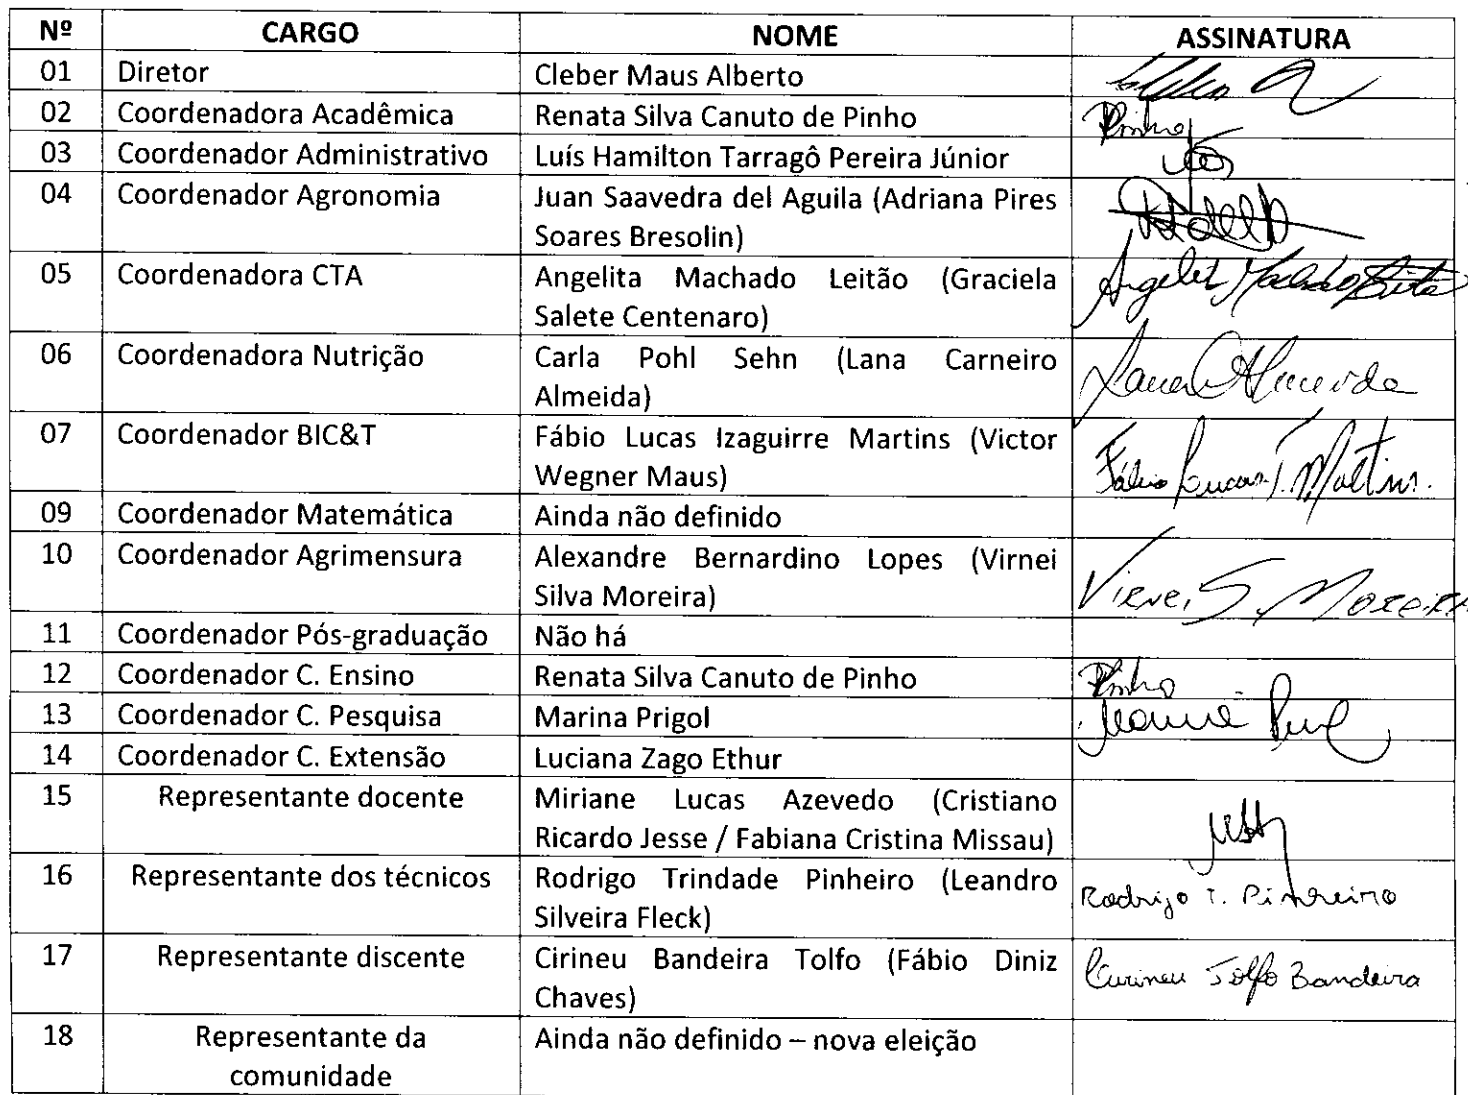 Nº CARGO NOME ASSINATURA
01 Diretor Cleber Maus Alberto
02 Coordenadora Acadêmica Renata Silva Canuto de Pinho Pinho
03 Coordenador Administrativo Luís Hamilton Tarragô Pereira Júnior
04 Coordenador Agronomia Juan Saavedra del Aguila (Adriana Pires
Soares Bresolin)
05 Coordenadora CTA Angelita Machado Leitão (Graciela
Salete Centenaro)
06 Coordenadora Nutrição Carla Pohl Sehn (Lana Carneiro
Almeida)
07 Coordenador BIC&T Fábio Lucas Izaguirre Martins (Victor
Wegner Maus) Fábio Lucas I. Martins.
09 Coordenador Matemática Ainda não definido
10 Coordenador Agrimensura Alexandre Bernardino Lopes (Virnei
Silva Moreira) Virnei S. Moreira
11 Coordenador Pós-graduação Não há
12 Coordenador C. Ensino Renata Silva Canuto de Pinho Pinho
13 Coordenador C. Pesquisa Marina Prigol
14 Coordenador C. Extensão Luciana Zago Ethur
15 Representante docente Miriane Lucas Azevedo (Cristiano
Ricardo Jesse / Fabiana Cristina Missau)
16 Representante dos técnicos Rodrigo Trindade Pinheiro (Leandro
Silveira Fleck) Rodrigo T. Pinheiro
17 Representante discente Cirineu Bandeira Tolfo (Fábio Diniz
Chaves) Cirineu Tolfo Bandeira
18 Representante da Ainda não definido – nova eleição
comunidade